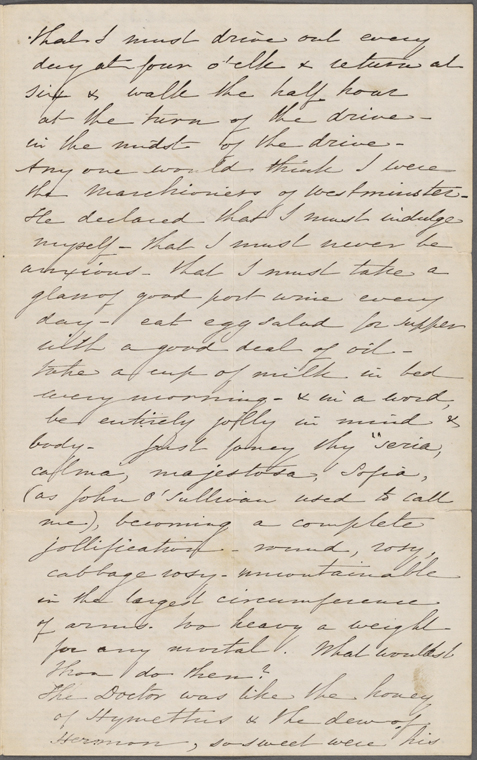 that I must drive out every
day at four o'clk & return at
six & walk the half hour
at the turn of the drive -
in the midst of the drive -
Any one would think I were
the marchioness of Westminster -
He declared that I must indulge
myself - that I must never be
anxious - that I must take a
glass of good port wine every
day - eat egg salad for supper
with a good deal of oil -
take a cup of milk in bed
every morning - & in a word,
be entirely jolly in mind &
body. Just fancy thy "seria,
calma, majestosa, Sofia,
(as John O'Sullivan used to call
me), becoming a complete
jollification - round, rosy,
cabbage rosy - uncontainable
in the largest circumference
of arms. too heavy a weight
for any mortal. What wouldst
thou do then?
The Doctor was like the honey
of Hymettus & the dew of
Hermon, so sweet were his